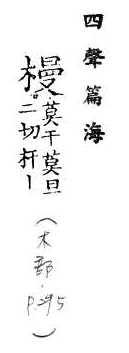 四聲篇海
槾莫干莫旦
二切杇丨
(木部. P.295)